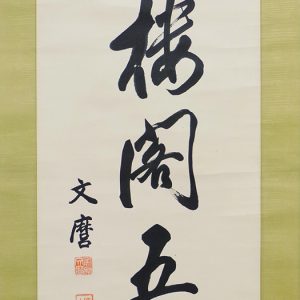 楼閣五
文麿